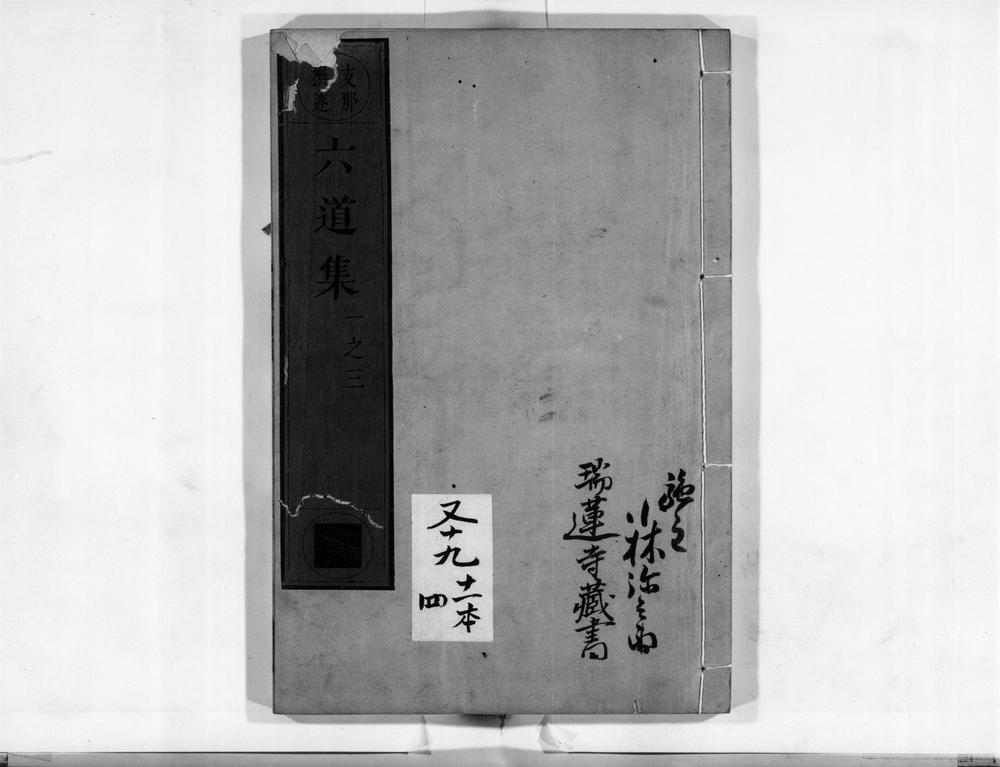 支那
撰述
六道集
一之三
施主
小林弥之
瑞蓮寺藏書
又十九
十一本
四